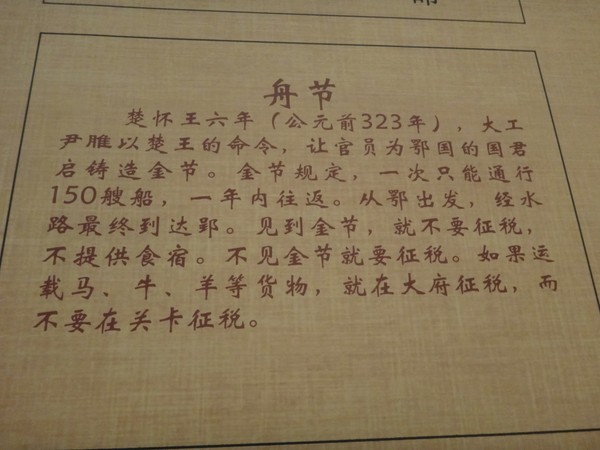 舟节
楚怀王六年（公元前323年），大工
尹脽以楚王的命令，让官员为鄂国的国君
启铸造金节。金节规定，一次只能通行
150艘船，一年内往返。从鄂出发，经水
路最终到达郢。见到金节，就不要征税，
不提供食宿。不见金节就要征税。如果运
载马、牛、羊等货物，就在大府征税，而
不要在关卡征税。